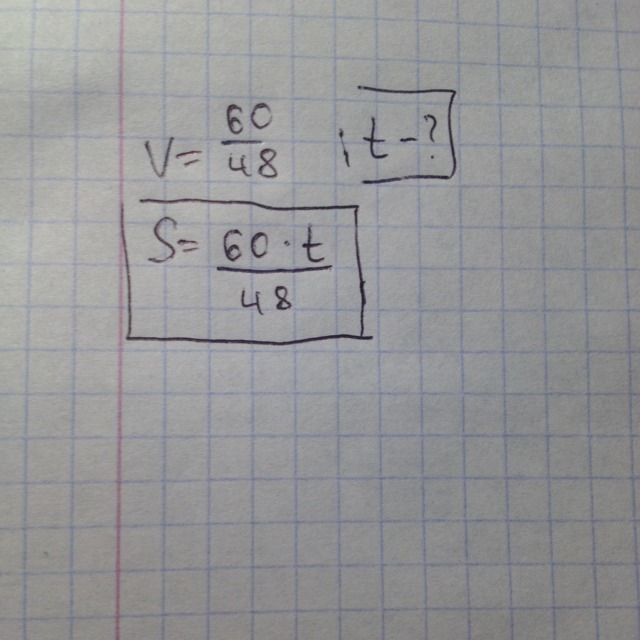 V = 60/48 ; t - ?
S = 60 · t / 48